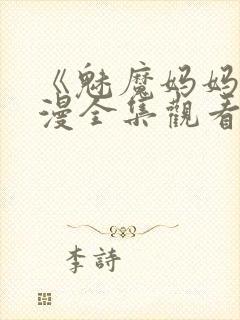 《魅魔妈妈
漫全集觀看
李詩